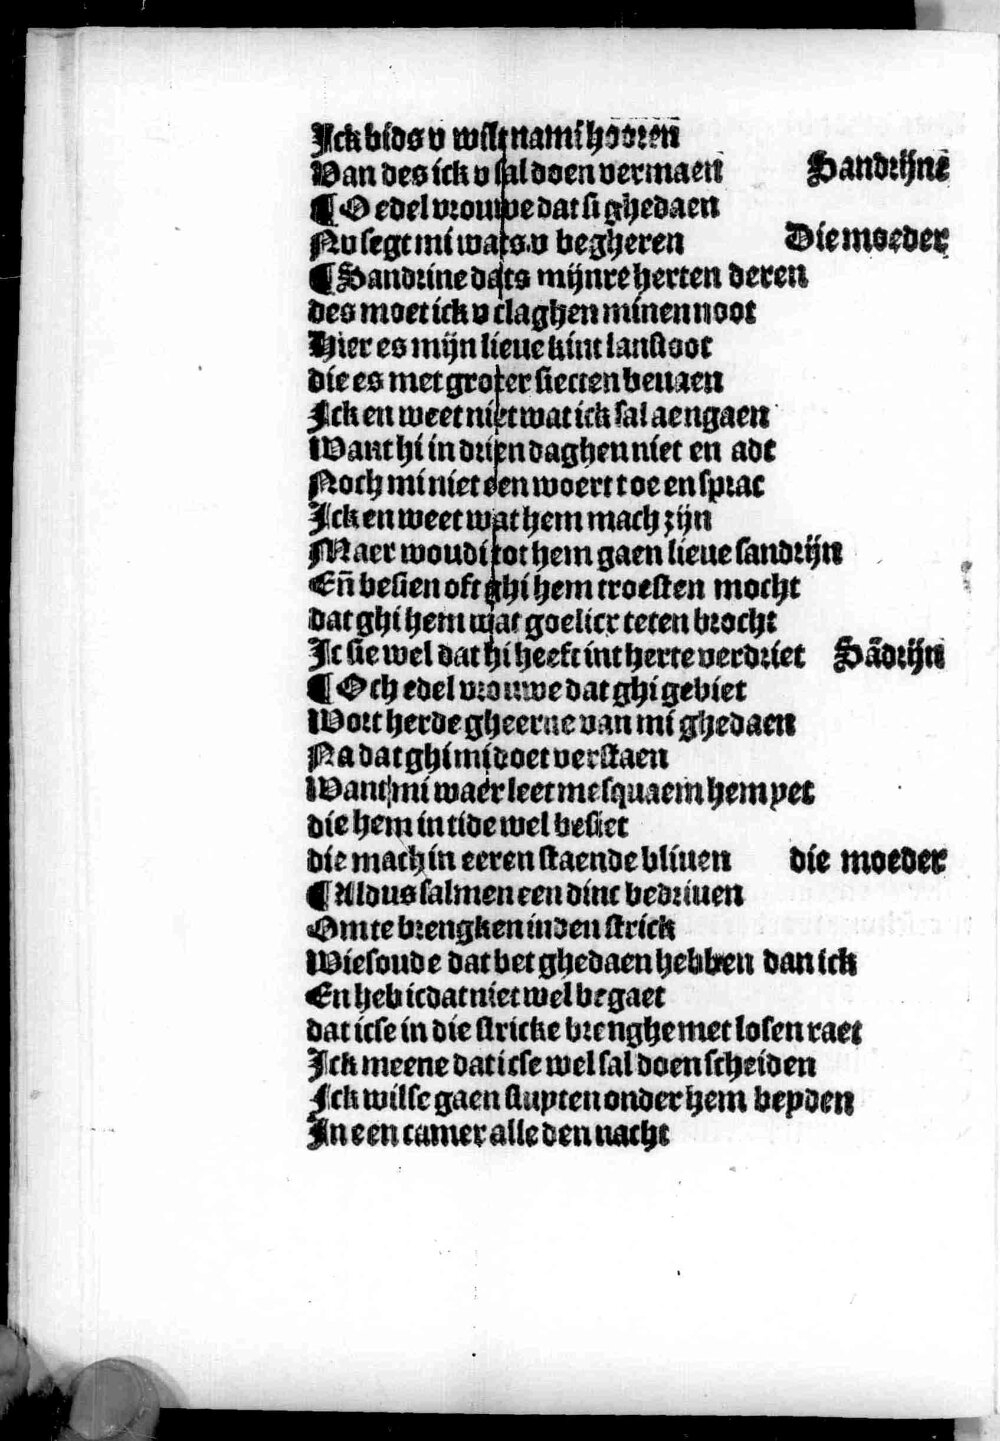 Ick bids v wilt na mi hooren
Van des ick v sal doen vermaen Sandrijne
¶ O edel vrouwe dat si ghedaen
Nv segt mi wats v begheren Die moeder
¶ Sandrine dats mijnre herten deren
des moet ick v claghen minen noot
Hier es mijn lieue kint lansloot
die es met groter siecten beuaen
Ick en weet niet wat ick sal aengaen
Want hi in drien daghen niet en adt
Noch mi niet een woert toe en sprac
Ick en weet wat hem mach zijn
Maer woudi tot hem gaen lieue sandrijn
Eñ besien oft ghi hem troesten mocht
dat ghi hem wat goelicx teten brocht
Ic sie wel dat hi heeft int herte verdriet Sãdrijn
¶ Och edel vrouwe dat ghi gebiet
Wort herde gheerne van mi ghedaen
Na dat ghi mi doet verstaen
Want mi waer leet mesquaem hem yet
die hem in tide wel besiet
die mach in eeren staende bliuen die moeder
¶ Aldus salmen een dinc bedriuen
Om te brengken in den strick
Wie soude dat bet ghedaen hebben dan ick
En heb ic dat niet wel begaet
dat icse in die stricke brenghe met losen raet
Ick meene dat icse wel sal doen scheiden
Ick wilse gaen sluyten onder hem beyden
In een camer alle den nacht